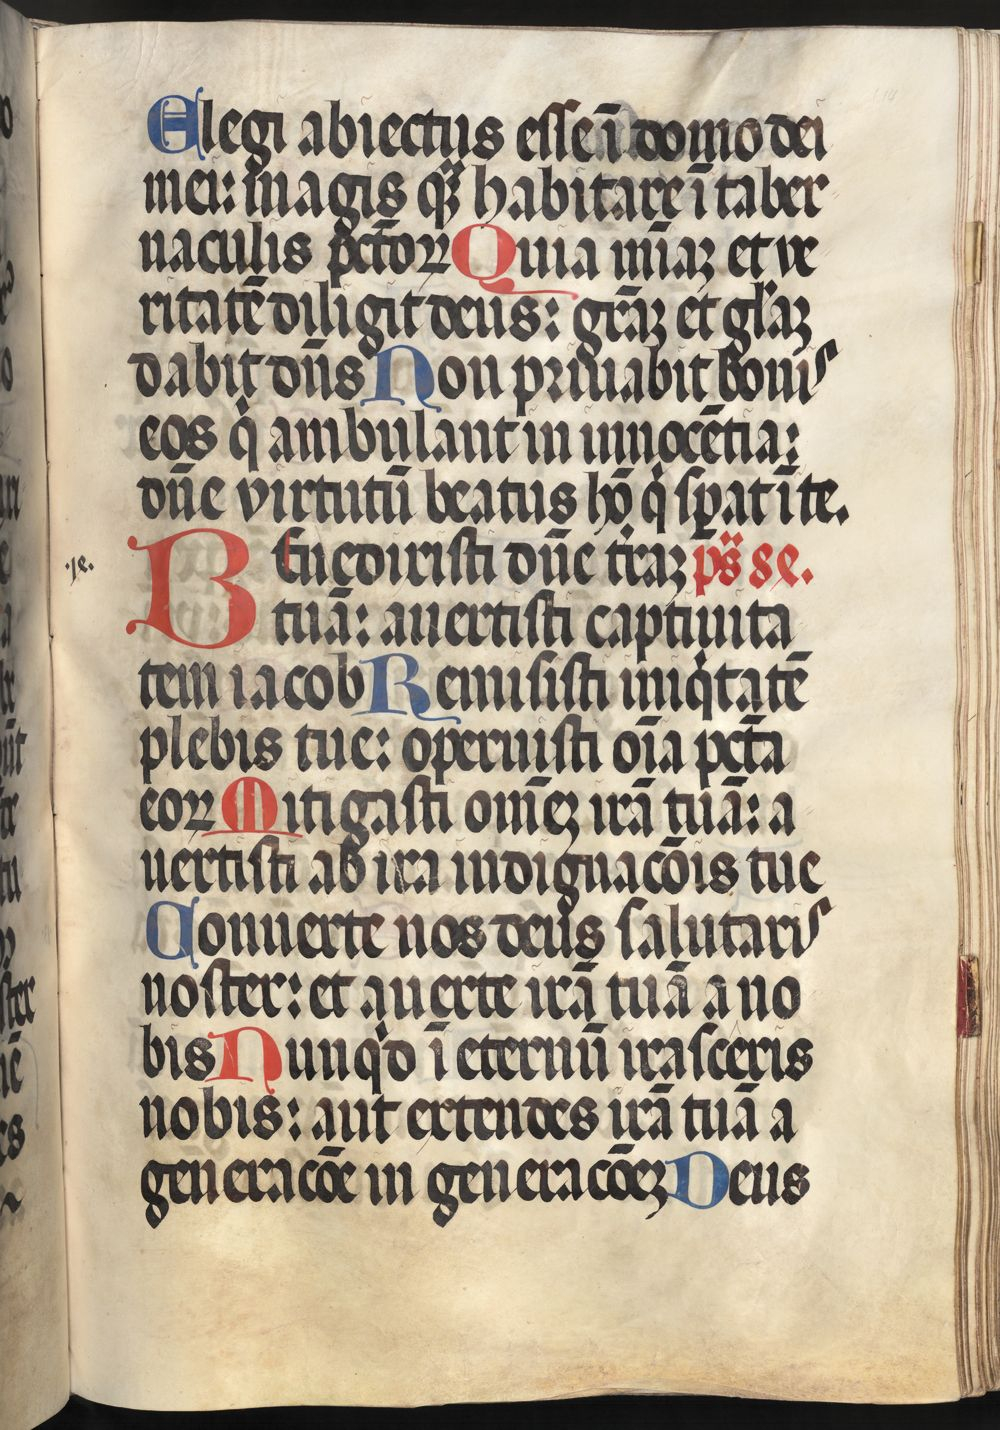 Elegi abiectus esse ī domo dei
mei: magis qȝ habitare ī taber
naculis pctoꝝ Quia mīaȝ et ve
ritatē diligit deus: grāȝ et gl'aȝ
dabit dn̄s Non priuabit bonis
eos q̇ ambulant in innocētia:
dn̄e virtutū beatus hō q̇ sꝑat ī te.
Benedixisti dn̄e t'raȝ ps̄ se.
.ıe.
tuā: auertisti captiuita
tem iacob Remisisti iniq̇tatē
plebis tue: operuisti oīa pctā
eoꝝ Mitigasti om̄eȝ irā tuā: a
uertisti ab ira indignacōis tue
Conuerte nos deus salutaris
noster: et auerte irā tuā a no
bis Nunq̇d ī eternū irasceris
nobis: aut extendes irā tuā a
generacōe in generacōeȝ Deus